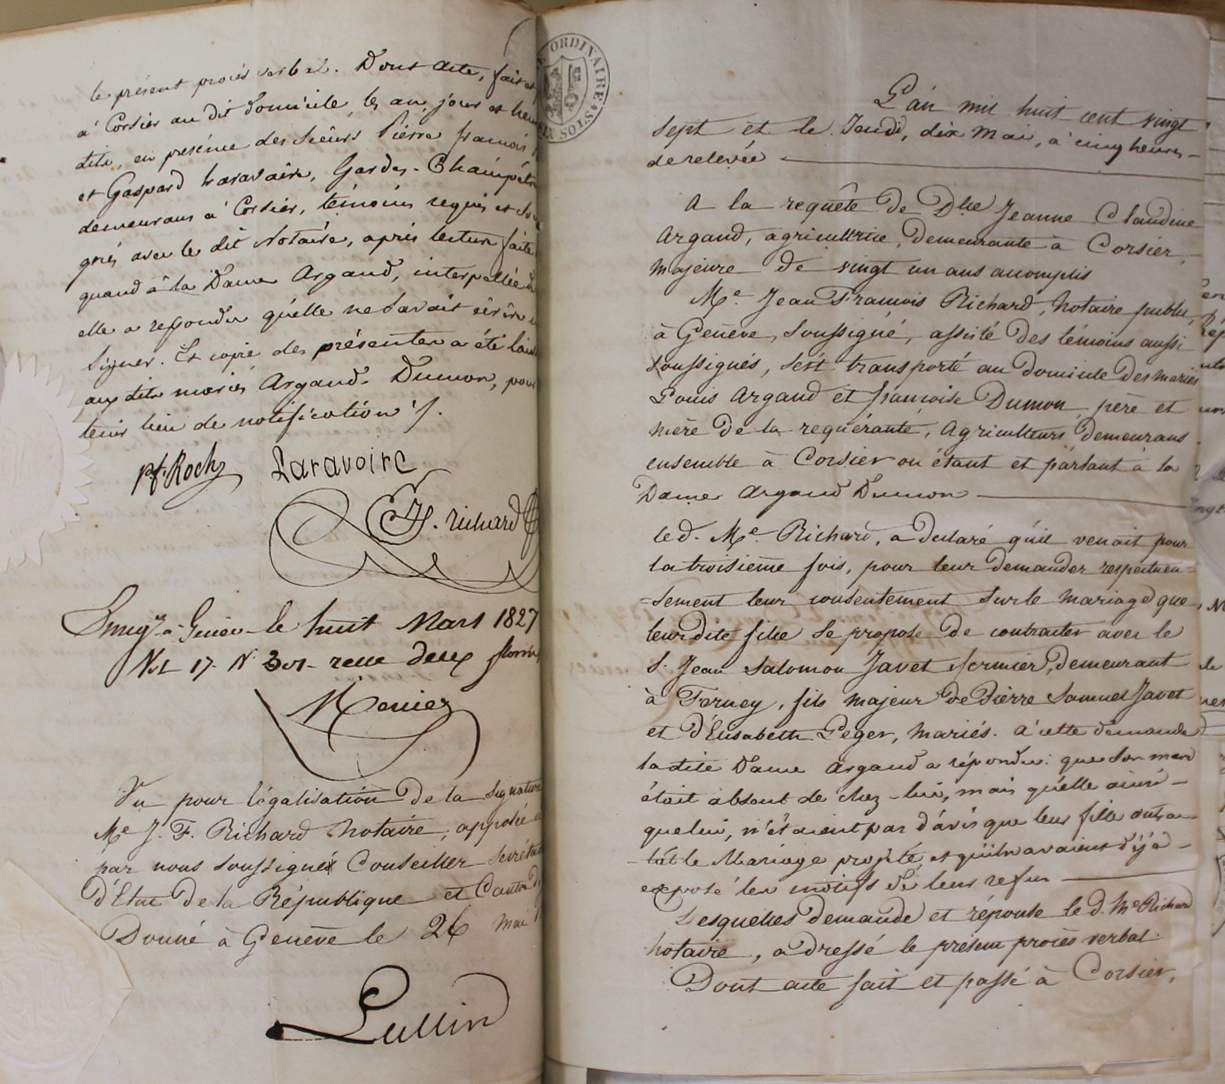 le présent procès verbal. Dont acte, fait et
à Corsier au dit domicile les an, jour et heure
dits, en présence des Sieurs Pierre françois
et Gaspard Laravoire, Gardes-Champêtres
demeurans à Corsier, témoins requis et
gnés avec le dit Notaire, après lecture faite
quand à la Dame Argand, interpellée
elle a repondu qu'elle ne savait écrire
signer. Et copie des présentes a été
aux dits mariés Argand-Dumon, pour
tenir lieu de notification ./.
Pf. Roch Laravoire
J. f. Richard
Enregé à Genève le huit Mars 1827
Vol 17. N. 301. reçu deux florins
Vu pour légalisation de la signature
Me. J. F. Richard notaire, apposée
par nous soussigné Conseiller Secrétaire
d'Etat de la République et Canton
Donné à Genève le 26 mai
Lullin
ORDINAIRE
SOIS
L'an mil huit cent vingt
sept et le Jeudi, dix Mai, à cinq heures
de relevée
A la requête de Dlle Jeanne Claudine
Argand, agricultrice, demeurante à Corsier,
majeure de vingt un ans accomplis
Me. Jean François Richard, notaire public,
à Genève, soussigné, assisté des témoins aussi
soussignés, s'est transporté au domicile des mariés
Louis Argand et françoise Dumon, père et
mère de la requérante, agriculteurs, demeurans
ensemble à Corsier où étant et parlant à la
Dame Argand Dumon
led. Me. Richard, a declaré qu'il venait pour
la troisième fois, pour leur demander respectueu=
=sement leur consentement sur le mariage que
leur dite fille se propose de contracter avec le
S. Jean Salomon Javet fermier, demeurant
à Ferney, fils majeur de Pierre Samuel Javet
et d'Elisabeth Peger, mariés. à cette demande
la dite Dame Argand a répondu: que son mari
était absent de chez-lui, mais qu'elle ainsi-
que lui, n'étaient pas d'avis que leur fille contrac-
tât le Mariage projeté, et qu'ils avaient déjà
exposé les motifs de leur refus
Desquelles demande et réponse le d. Me Richard
notaire, a dressé le présent procès verbal.
Dont acte fait et passé à Corsier,